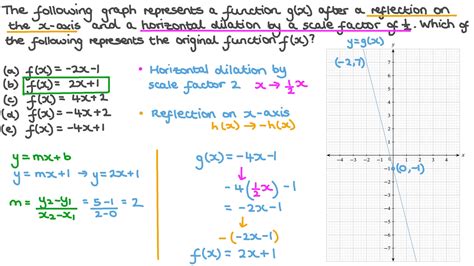 The following graph represents a function g(x) after a reflection on
the x-axis and a horizontal dilation by a scale factor of 1/2. Which of
the following represents the original function f(x)?
(a) f(x) = -2x-1
(b) f(x) = 2x+1
(c) f(x) = 4x+2
(d) f(x) = -4x+2
(e) f(x) = -4x+1
• Horizontal dilation by
scale factor 2 x → 1/2x
• Reflection on x-axis
h(x) → -h(x)
y = mx+b
y = mx+1 → y = 2x+1
m = y₂-y₁/x₂-x₁ = 5-1/2-0 = 2
g(x) = -4x-1
-4(1/2x) - 1
= -2x-1
-(-2x-1)
f(x) = 2x+1
y=g(x)
(-2,7)
(0,-1)
-4 -3 -2 -1 0 1 2 3 4